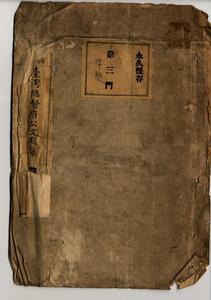 永久保存
第三門
臺灣總督府公文類纂